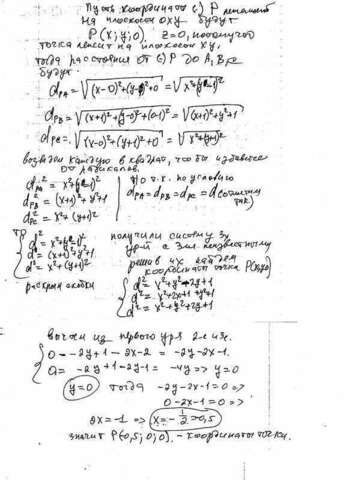 Пусть координаты (·) P лежащей
на плоскости OXY будут
P(x; y; 0). z=0, потому что
точка лежит на плоскости XY,
тогда расстояния от (·) P до A, B, C
будут
d_PA = √((x-0)²+(y-1)²+0²) = √(x²+(y-1)²)
d_PB = √((x+1)²+(y-0)²+(0-1)²) = √((x+1)²+y²+1
d_PC = √((x-0)²+(y+1)²+0) = √(x²+(y+1)²
возведем каждую в квадрат, чтобы избавиться
от радикалов.
d²_PA = x²+(y-1)²
d²_PB = (x+1)²+y²+1
d²_PC = x²+(y+1)²
но т.к. по условию
d_PA = d_PB = d_PC = d (обозначим
так)
то
{ d² = x²+(y-1)²
d² = (x+1)²+y²+1
d² = x²+(y+1)²
раскроем скобки
получили систему 3х
ур-й с 3мя неизвестными
решив их найдем
координаты точки P(x,y,0)
{ d² = x²+y²-2y+1
d² = x²+2x+1+y²+1
d² = x²+y²+2y+1
вычтем из первого ур-я 2е и 3е.
{ 0 = -2y+1-2x-2 = -2y-2x-1.
0 = -2y+1-2y-1 = -4y => y=0
y=0 тогда -2y-2x-1=0 =>
0-2x-1=0 =>
2x=-1 => x=-1/2=0,5
значит P(0,5; 0; 0). - координаты точки.